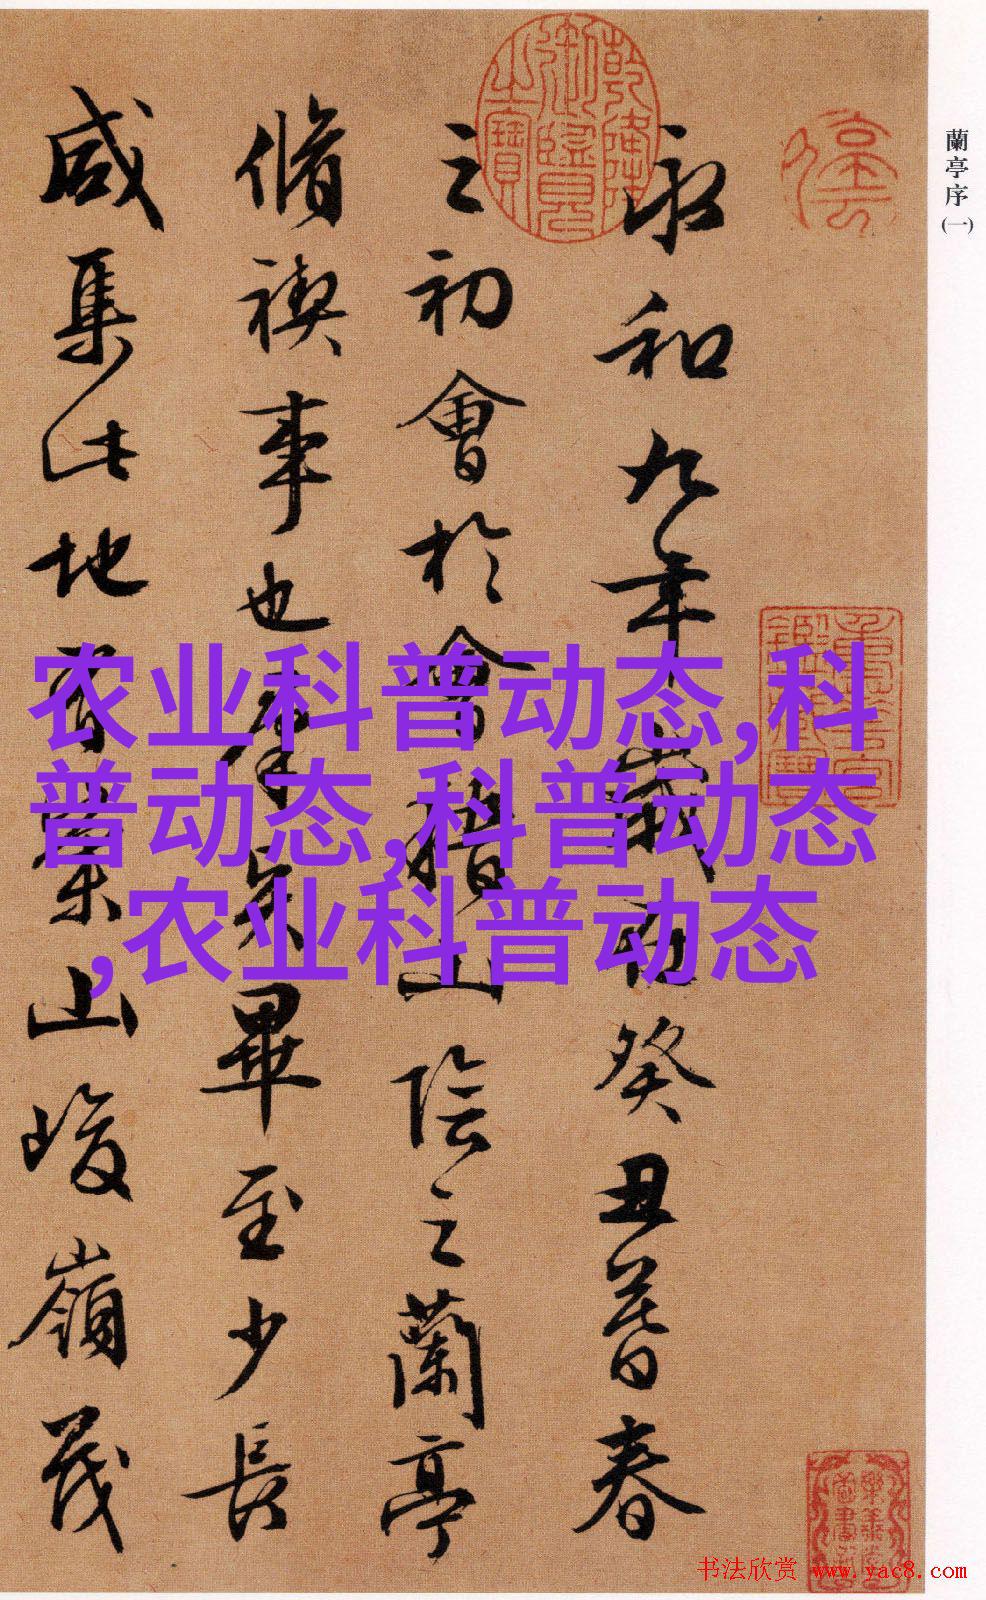 蘭亭序(一)
永和九年歲在癸丑暮春
之初會於會稽山陰之蘭亭
脩禊事也羣賢畢至少長
咸集此地有崇山峻嶺茂
农业科普动态,科
普动态,科普动态
,农业科普动态
乾隆御覽之寶
书法欣赏 www.yac8.com